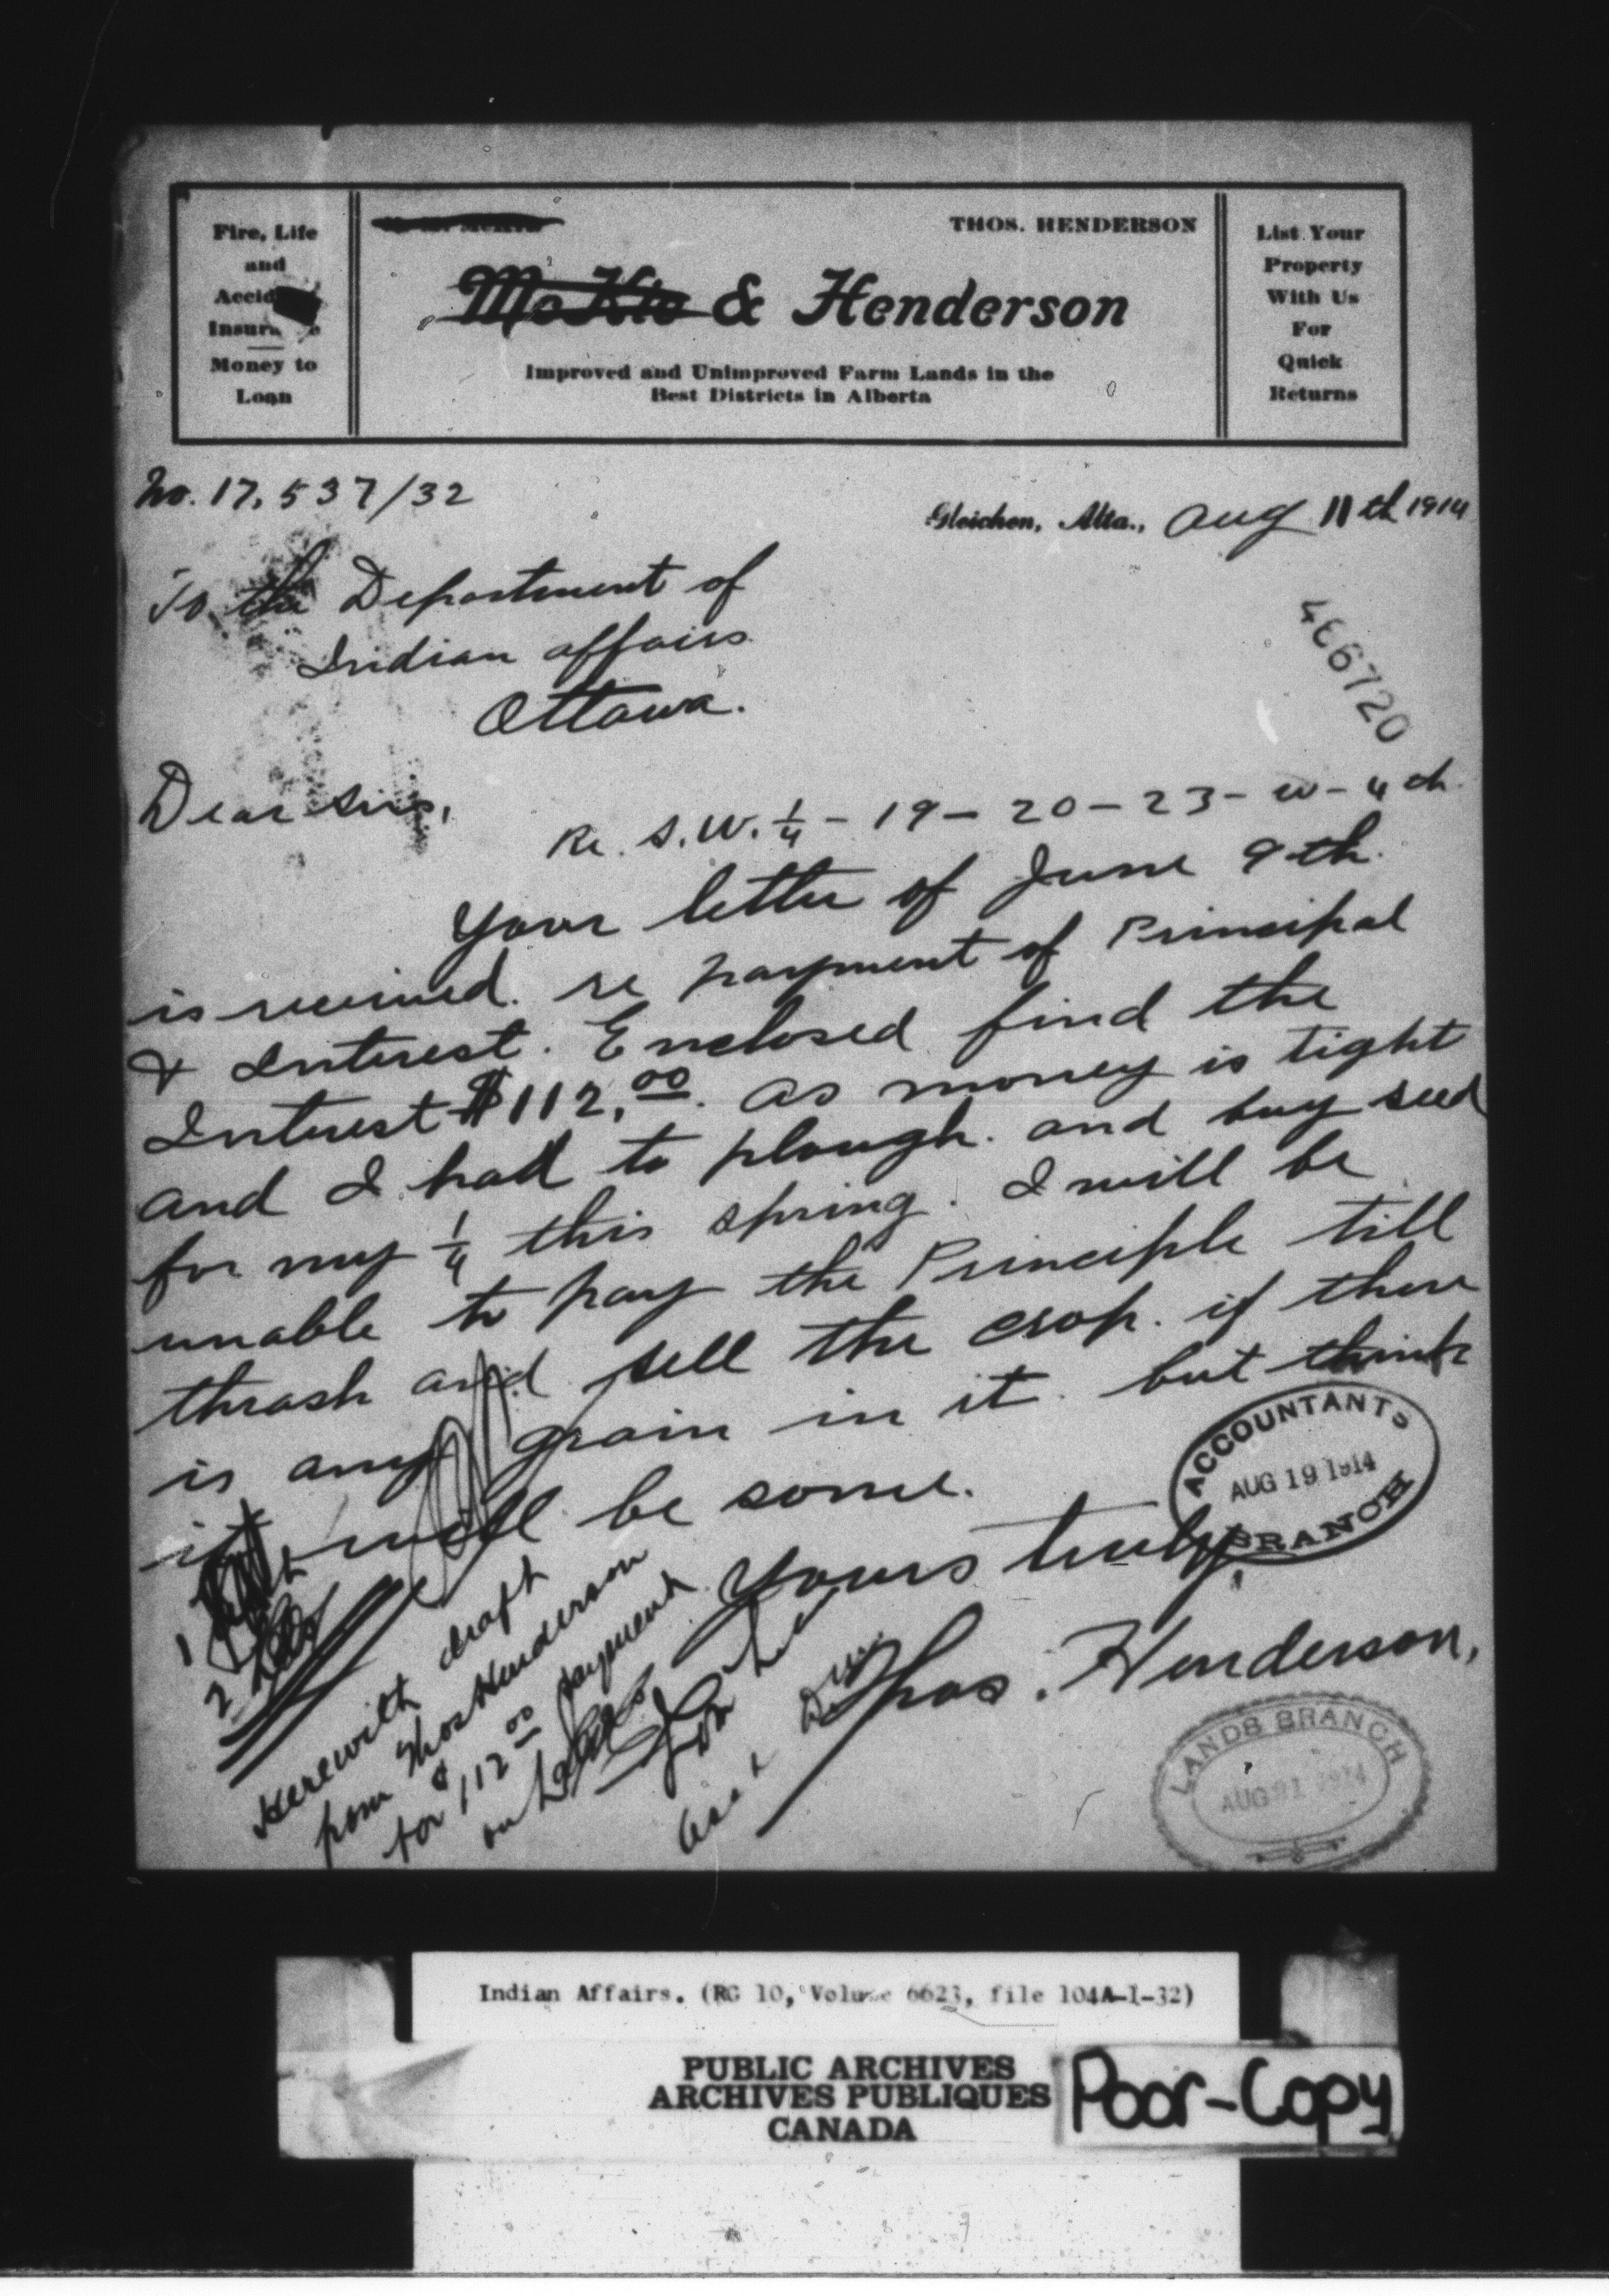 Fire, Life
and
Insurance
Money to
Loan
THOS. HENDERSON
McKie & Henderson
Improved and Unimproved Farm Lands in the
Best Districts in Alberta
List Your
Property
With Us
For
Quick
Returns
No. 17,537/32
Gleichen, Alta., Aug 11th 1914
466720
To the Department of
Indian affairs
Ottawa.
Dear Sirs,
Re. S.W. 1/4 - 19 - 20 - 23 - W - 4th.
Your letter of June 9th.
is received. re payment of Principal
& Interest. Enclosed find the
Interest $112.00. as money is tight
and I had to plough. and buy seed
for my 1/4 this spring. I will be
unable to pay the Principle till
thrash and sell the crop. if there
is any grain in it. but think
it will be some.
Yours truly,
Thos. Henderson,
ACCOUNTANTS
AUG 19 1914
BRANCH
1
2
Herewith draft
from Thos Henderson
for $112.00 payment
on
LANDS BRANCH
AUG 21 1914
Indian Affairs. (RG 10, Volume 6623, file 104A-1-32)
PUBLIC ARCHIVES
ARCHIVES PUBLIQUES
CANADA
Poor-Copy